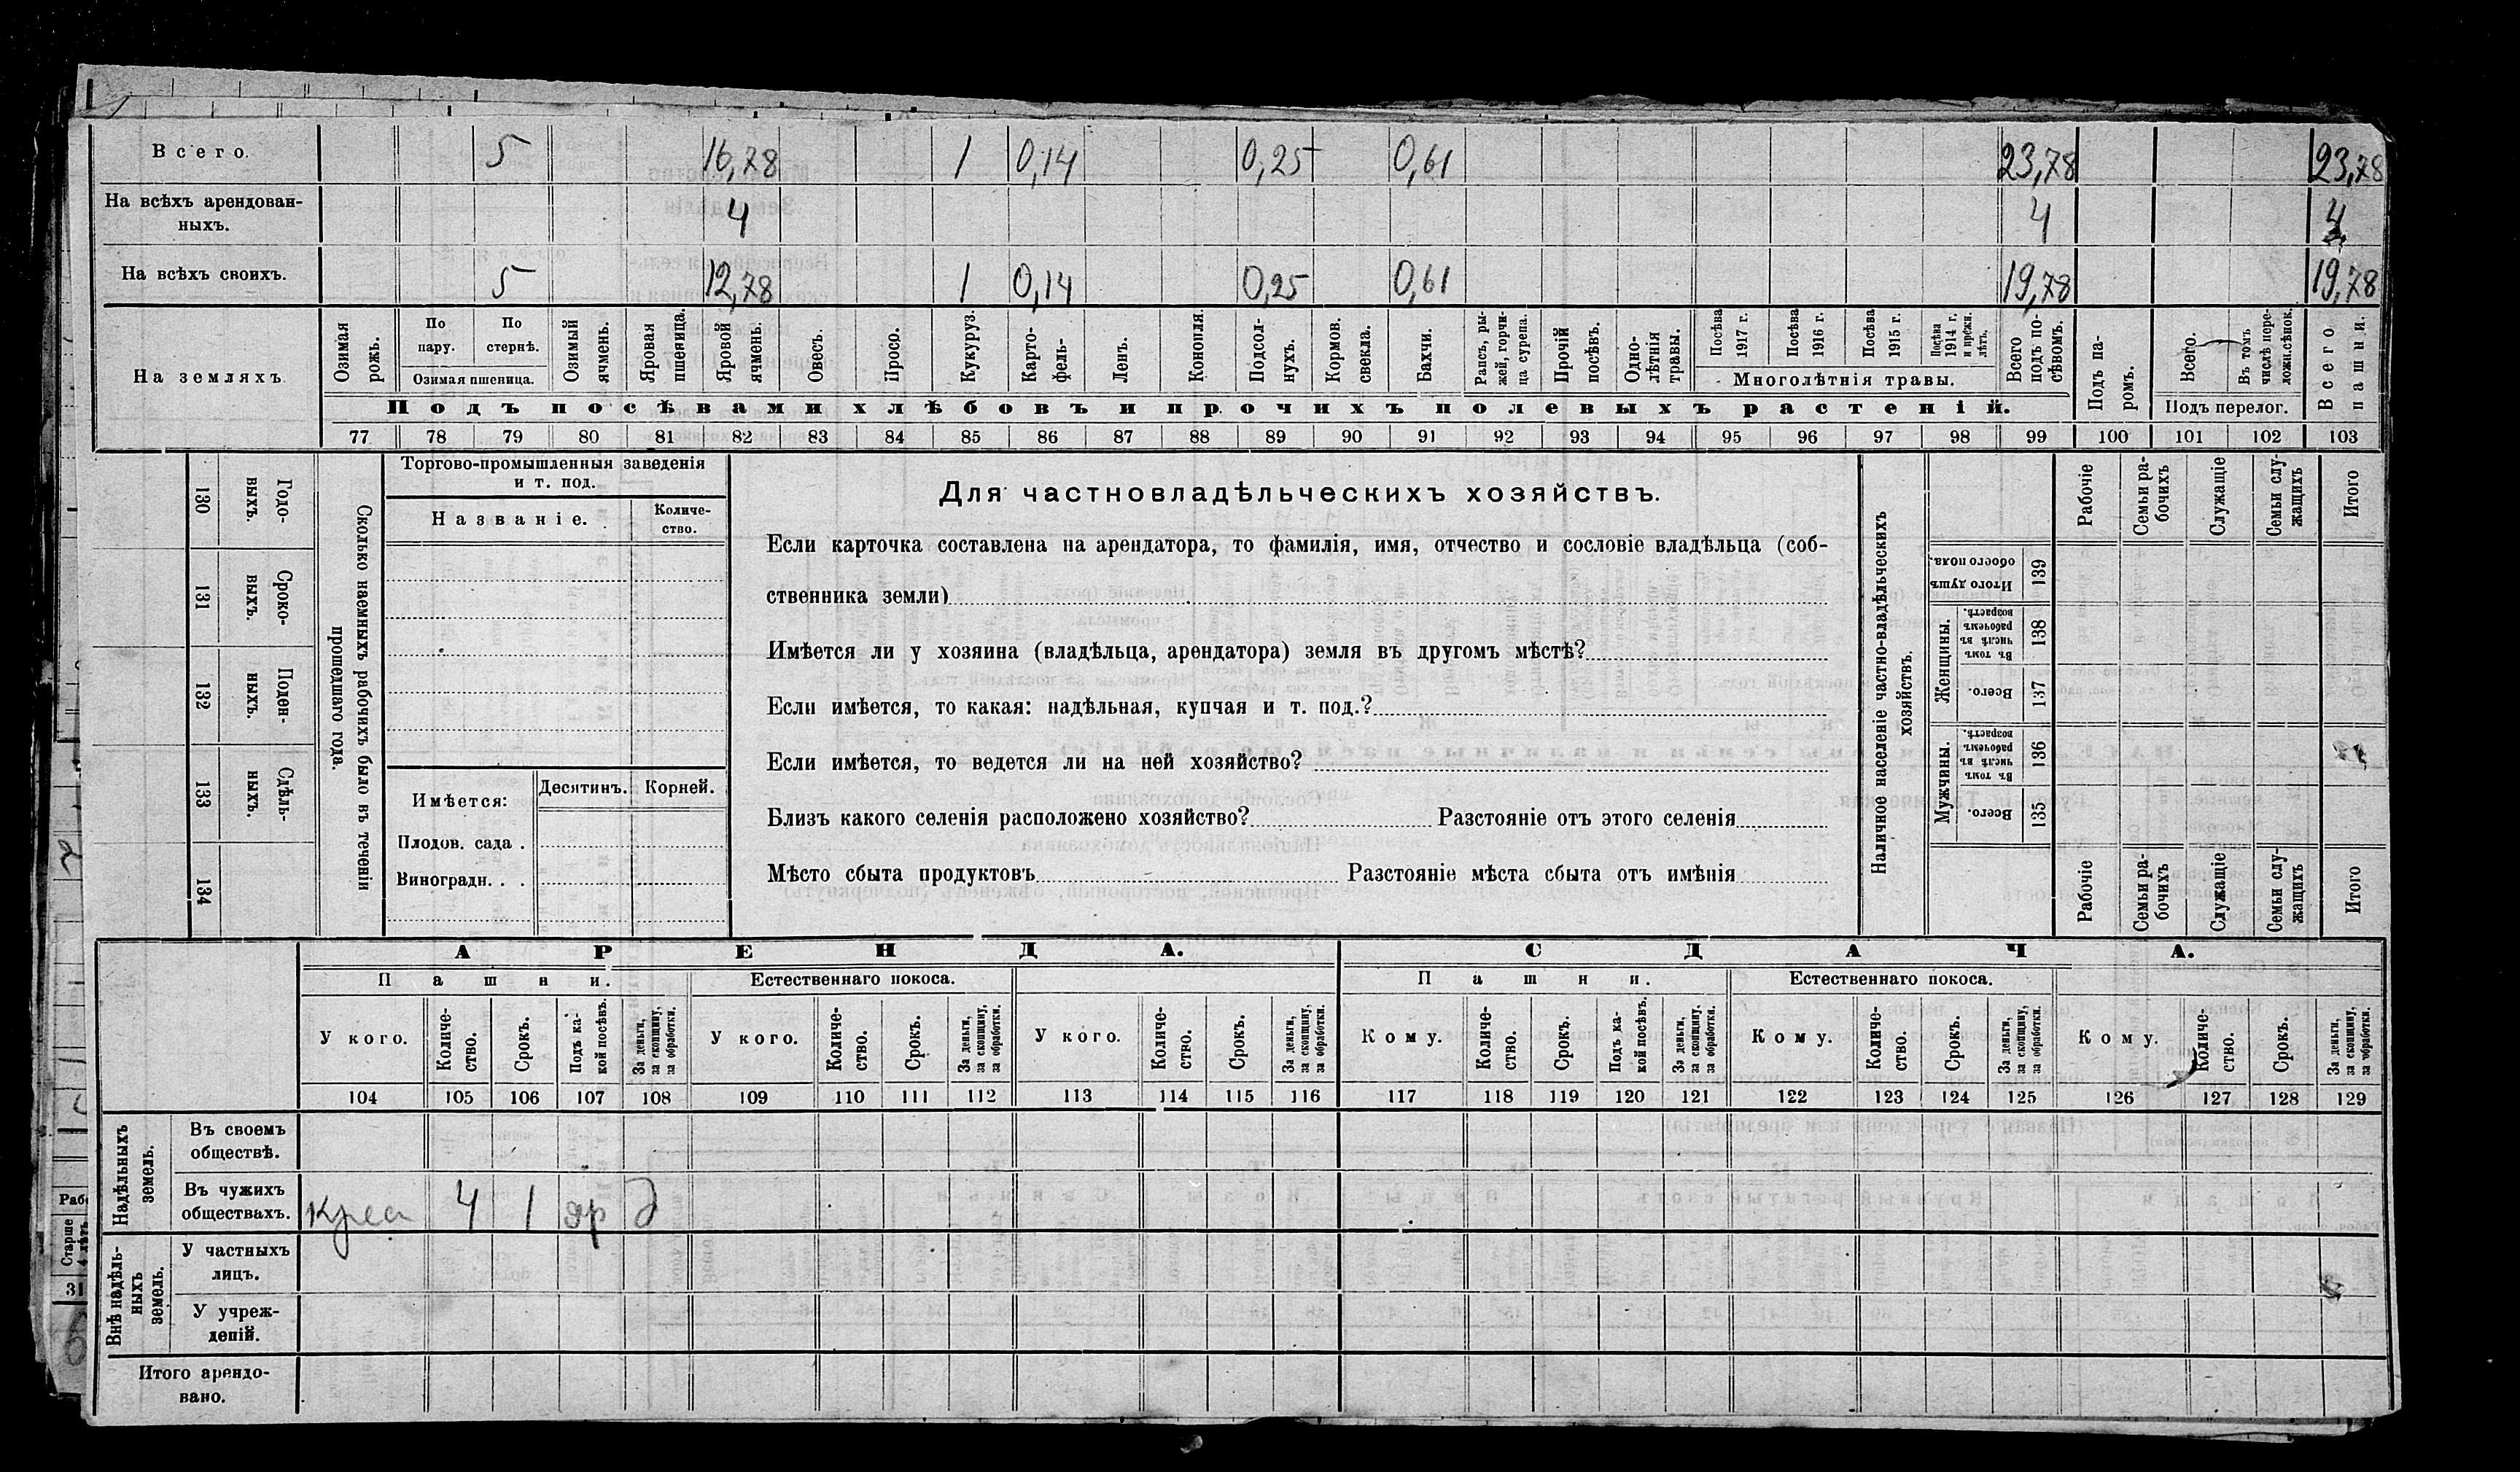 Всего. 5 16,78 1 0,14 0,25 0,61 23,78 23,78
На всѣхъ арендован-
ныхъ. 4 4 4
На всѣхъ своихъ. 5 12,78 1 0,14 0,25 0,61 19,78 19,78
На земляхъ
Озимая рожь.
По пару.
По стернѣ.
Озимая пшеница.
Озимый ячмень.
Яровая пшеница.
Яровой ячмень.
Овесъ.
Просо.
Кукуруз.
Карто-
фель-
Ленъ.
Конопля.
Подсол-
нухъ.
Кормов. свекла.
Бахчи.
Рапсъ, ры-
жей, горчи-
ца сурепа.
Прочій посѣвъ.
Одно-
лѣтнія травы.
Посѣва 1917 г.
Посѣва 1916 г.
Посѣва 1915 г.
Посѣва 1914 г. и прежн. лѣтъ.
Многолѣтнія травы.
Всего подъ по-
сѣвомъ.
Подъ па-
ромъ.
Всего.
Въ томъ числѣ пере-
ложн.сѣнок.
Подъ перелог.
Всего пашни.
Подъ посѣвами хлѣбовъ и прочихъ полевыхъ растеній.
77 78 79 80 81 82 83 84 85 86 87 88 89 90 91 92 93 94 95 96 97 98 99 100 101 102 103
130 Годо-
выхъ.
131 Сроко-
выхъ.
132 Поден-
ныхъ.
133 Сдѣль-
ныхъ.
134
Сколько наемныхъ рабочихъ было въ теченіи
прошедшаго года.
Торгово-промышленныя заведенія
и т. под.
Названіе.
Количе-
ство.
Имѣется:
Десятинъ. Корней.
Плодов. сада .
Виноградн. . .
Для частновладѣльческихъ хозяйствъ.
Если карточка составлена на арендатора, то фамилія, имя, отчество и сословіе владѣльца (соб-
ственника земли)
Имѣется ли у хозяина (владѣльца, арендатора) земля въ другомъ мѣстѣ?
Если имѣется, то какая: надѣльная, купчая и т. под.?
Если имѣется, то ведется ли на ней хозяйство?
Близъ какого селенія расположено хозяйство? Разстояніе отъ этого селенія
Мѣсто сбыта продуктовъ Разстояніе мѣста сбыта отъ имѣнія
Наличное населеніе частно-владѣльческихъ
хозяйствъ.
Рабочіе
Семьи ра-
бочихъ
Служащіе
Семьи слу-
жащихъ
Итого
Итого душъ обоего пола. 139
Женщины.
Въ томъ числѣ въ рабочемъ возрастѣ. 138
Всего. 137
Мужчины.
Въ томъ числѣ въ рабочемъ возрастѣ. 136
Всего. 135
Рабочіе
Семьи ра-
бочихъ
Служащіе
Семьи слу-
жащихъ
Итого
АРЕНДА. СДАЧА.
Пашни. Естественнаго покоса. Пашни. Естественнаго покоса.
У кого.
Количе-
ство.
Срокъ.
Подъ ка-
кой посѣвъ.
За деньги, за скопщину, за обработки.
У кого.
Количе-
ство.
Срокъ.
За деньги, за скопщину, за обработки.
У кого.
Количе-
ство.
Срокъ.
За деньги, за скопщину, за обработки.
Кому.
Количе-
ство.
Срокъ.
Подъ ка-
кой посѣвъ.
За деньги, за скопщину, за обработки.
Кому.
Количе-
ство.
Срокъ.
За деньги, за скопщину, за обработки.
Кому.
Количе-
ство.
Срокъ.
За деньги, за скопщину, за обработки.
104 105 106 107 108 109 110 111 112 113 114 115 116 117 118 119 120 121 122 123 124 125 126 127 128 129
Надѣльныхъ земель.
Въ своемъ
обществѣ.
Въ чужихъ
обществахъ. крес 4 1 яр д
Внѣ надѣль-
ныхъ земель.
У частныхъ
лицъ.
У учреж-
деній.
Итого арендо-
вано.
Старше
31